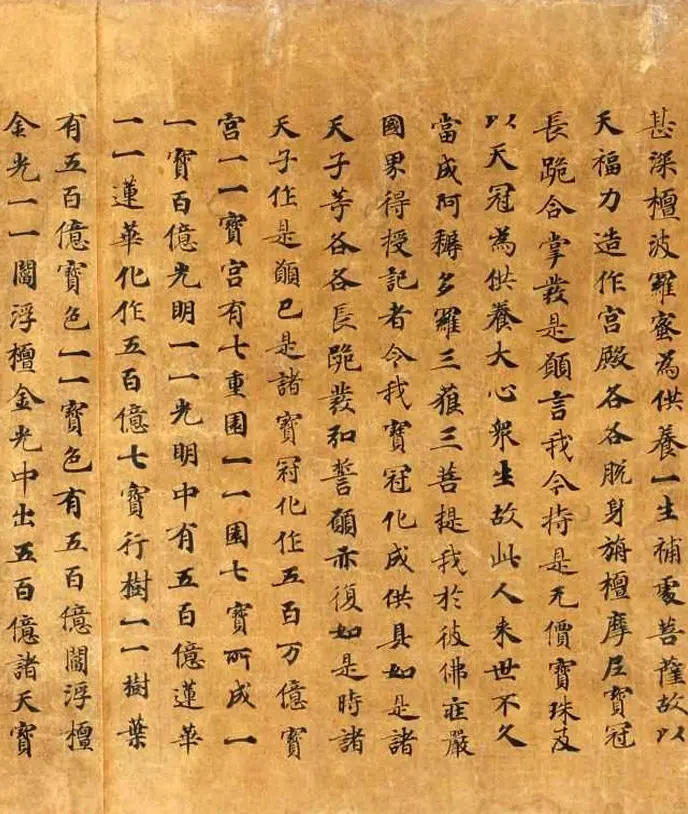 甚深檀波羅蜜為供養一生補處菩薩故以
天福力造作宮殿各各脫身旃檀摩尼寶冠
長跪合掌發是願言我今持是无價寶珠及
以天冠為供養大心衆生故此人来世不久
當成阿耨多羅三藐三菩提我於彼佛莊嚴
國界得授記者令我寶冠化成供具如是諸
天子等各各長跪發弘誓願亦復如是時諸
天子作是願已是諸寶冠化作五百万億寶
宮一一寶宮有七重園一一園七寶所成一
一寶百億光明一一光明中有五百億蓮華
一一蓮華化作五百億七寶行樹一一樹葉
有五百億寶色一一寶色有五百億閻浮檀
金光一一閻浮檀金光中出五百億諸天寶